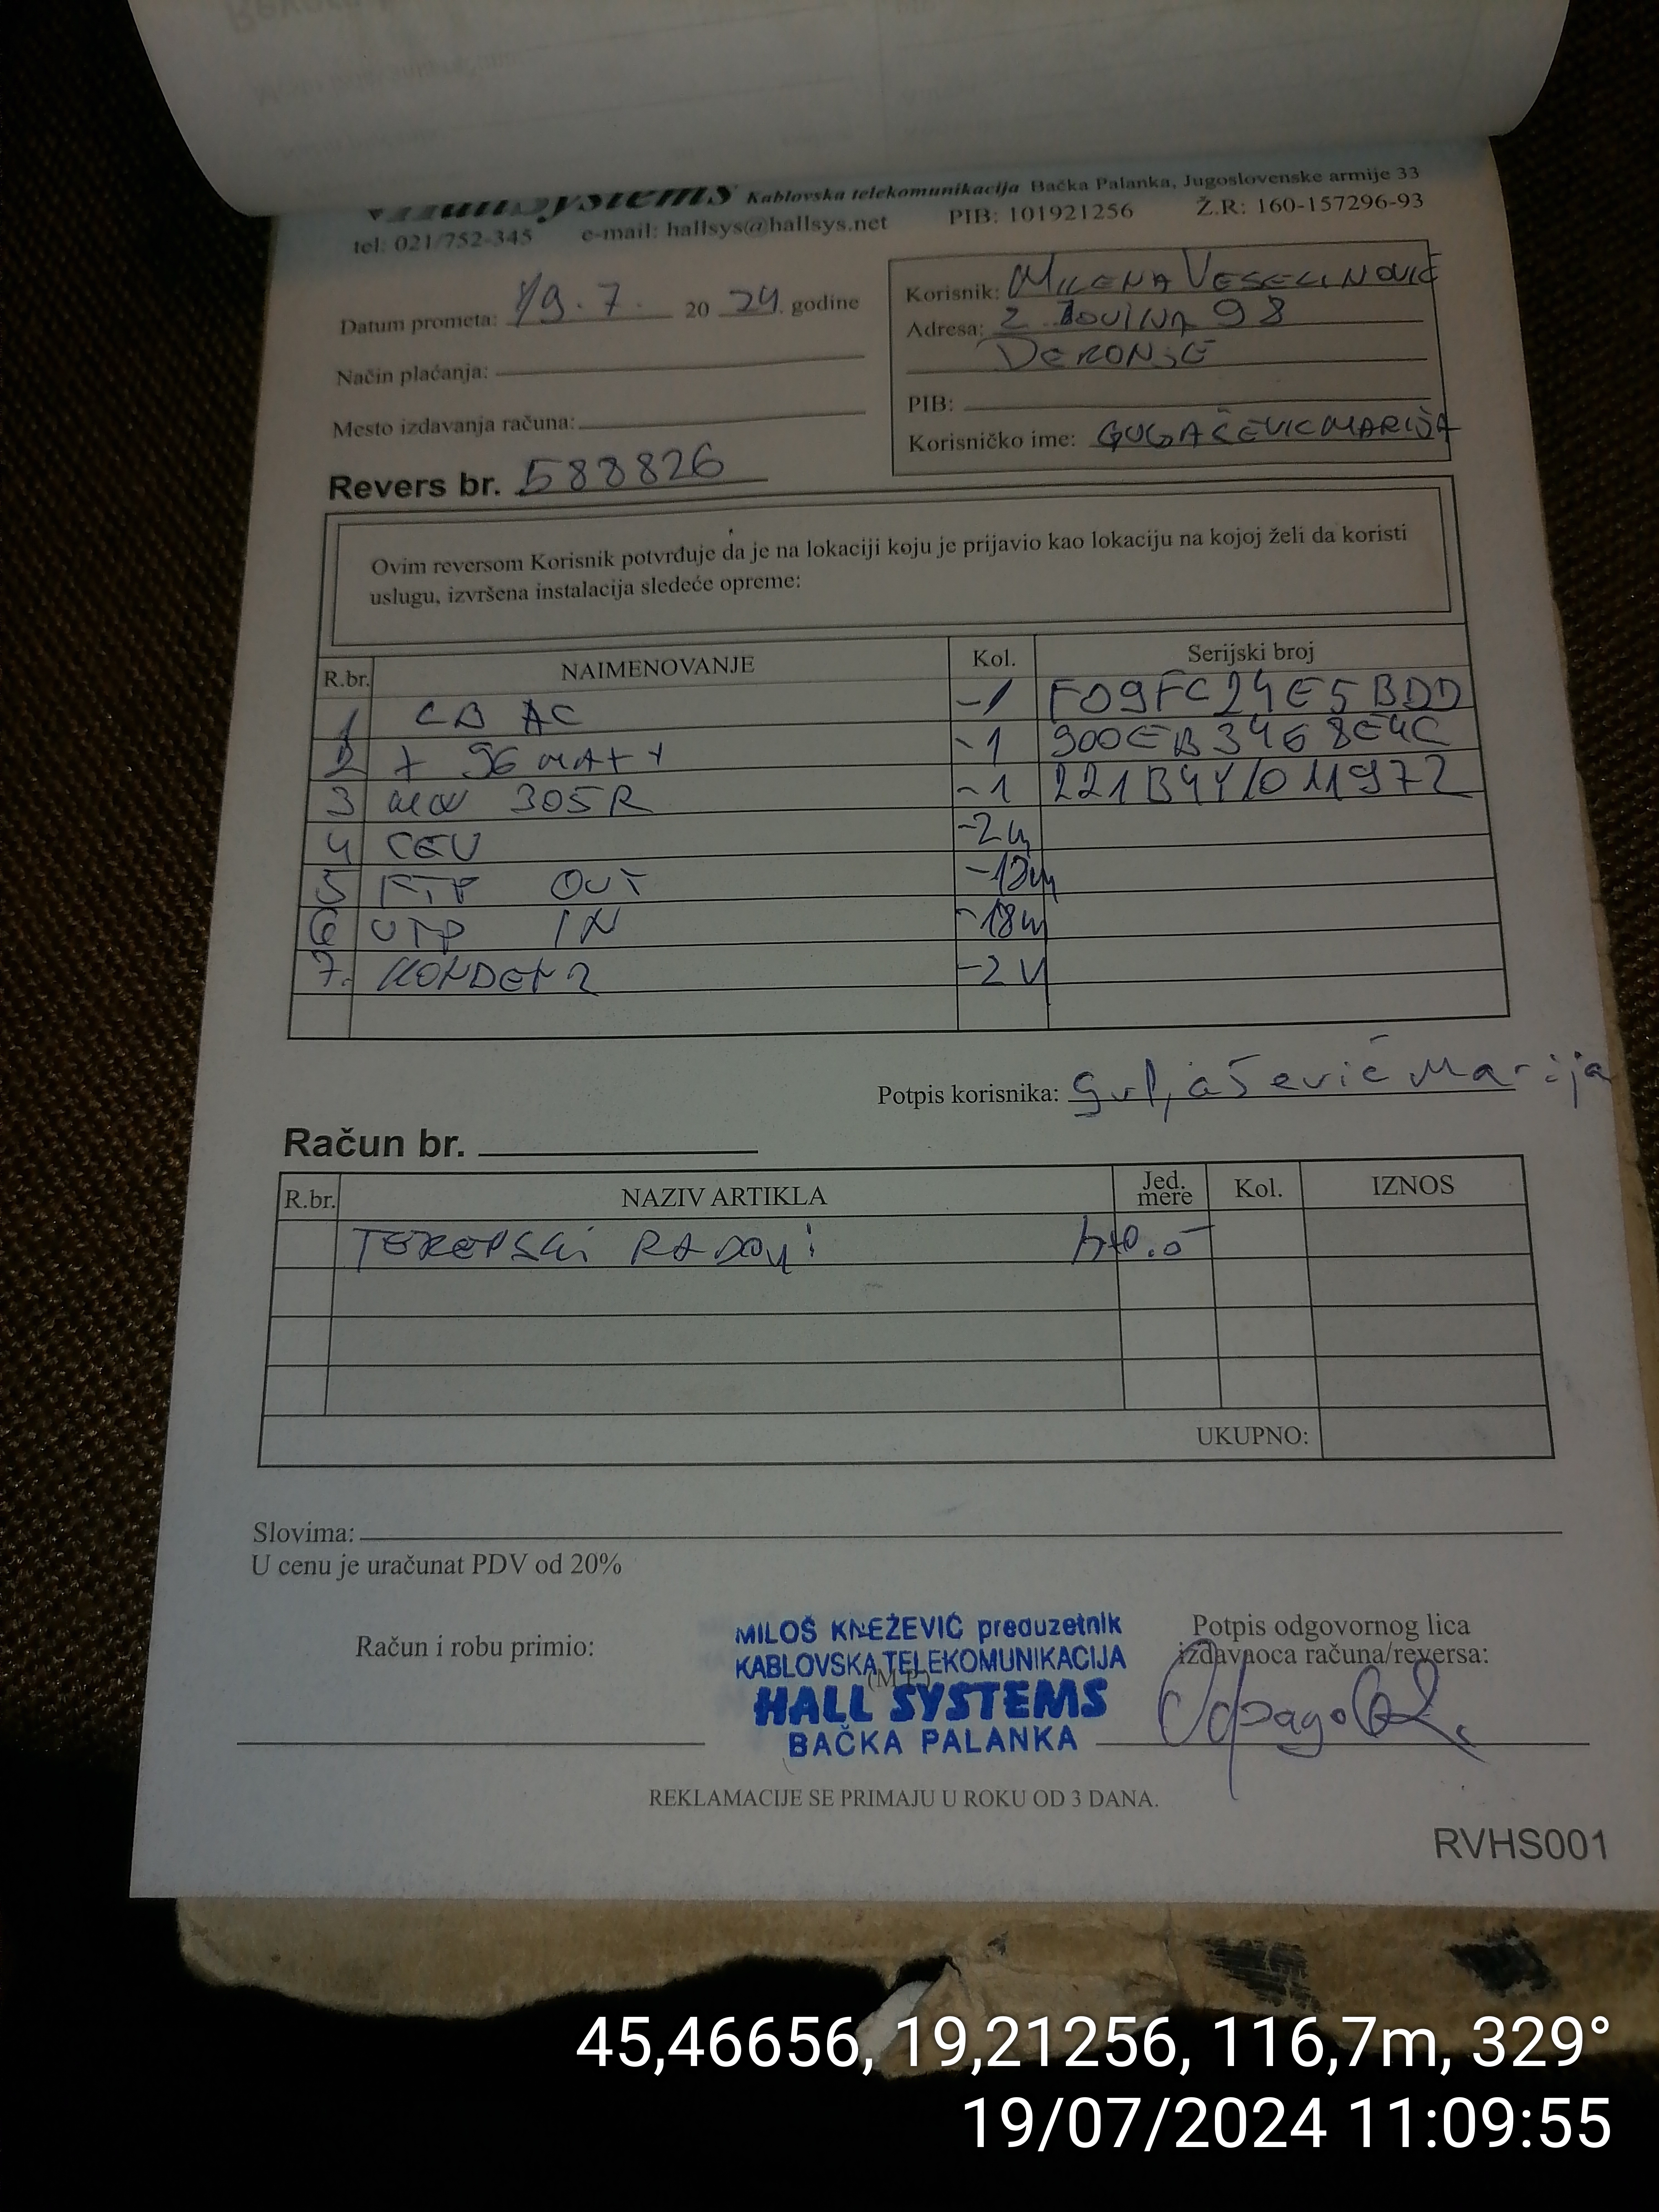 HallSystems Kablovska telekomunikacija Bačka Palanka, Jugoslovenske armije 33
tel: 021/752-345 e-mail: hallsys@hallsys.net PIB: 101921256 Ž.R: 160-157296-93
Datum prometa: 19.7. 20 24. godine
Način plaćanja:
Mesto izdavanja računa:
Revers br. 588826
Korisnik: MILENA VESELINOVIĆ
Adresa: 98
DERONJE
PIB:
Korisničko ime:
Ovim reversom Korisnik potvrđuje da je na lokaciji koju je prijavio kao lokaciju na kojoj želi da koristi
uslugu, izvršena instalacija sledeće opreme:
R.br. NAIMENOVANJE Kol. Serijski broj
1 AC -1 F09FC24E5BDD
2 X 96 -1 900EB3468E4C
3 MW 305R -1
4 CEV -2m
5 FTP OUT
6 UTP IN -18m
7.
Potpis korisnika: Marija
Račun br.
R.br. NAZIV ARTIKLA Jed. mere Kol. IZNOS
TERENSKI RADOVI
UKUPNO:
Slovima:
U cenu je uračunat PDV od 20%
Račun i robu primio:
MILOŠ KNEŽEVIĆ preduzetnik
KABLOVSKA TELEKOMUNIKACIJA
(M.P.)
HALL SYSTEMS
BAČKA PALANKA
Potpis odgovornog lica
izdavaoca računa/reversa:
REKLAMACIJE SE PRIMAJU U ROKU OD 3 DANA.
RVHS001
45,46656, 19,21256, 116,7m, 329°
19/07/2024 11:09:55